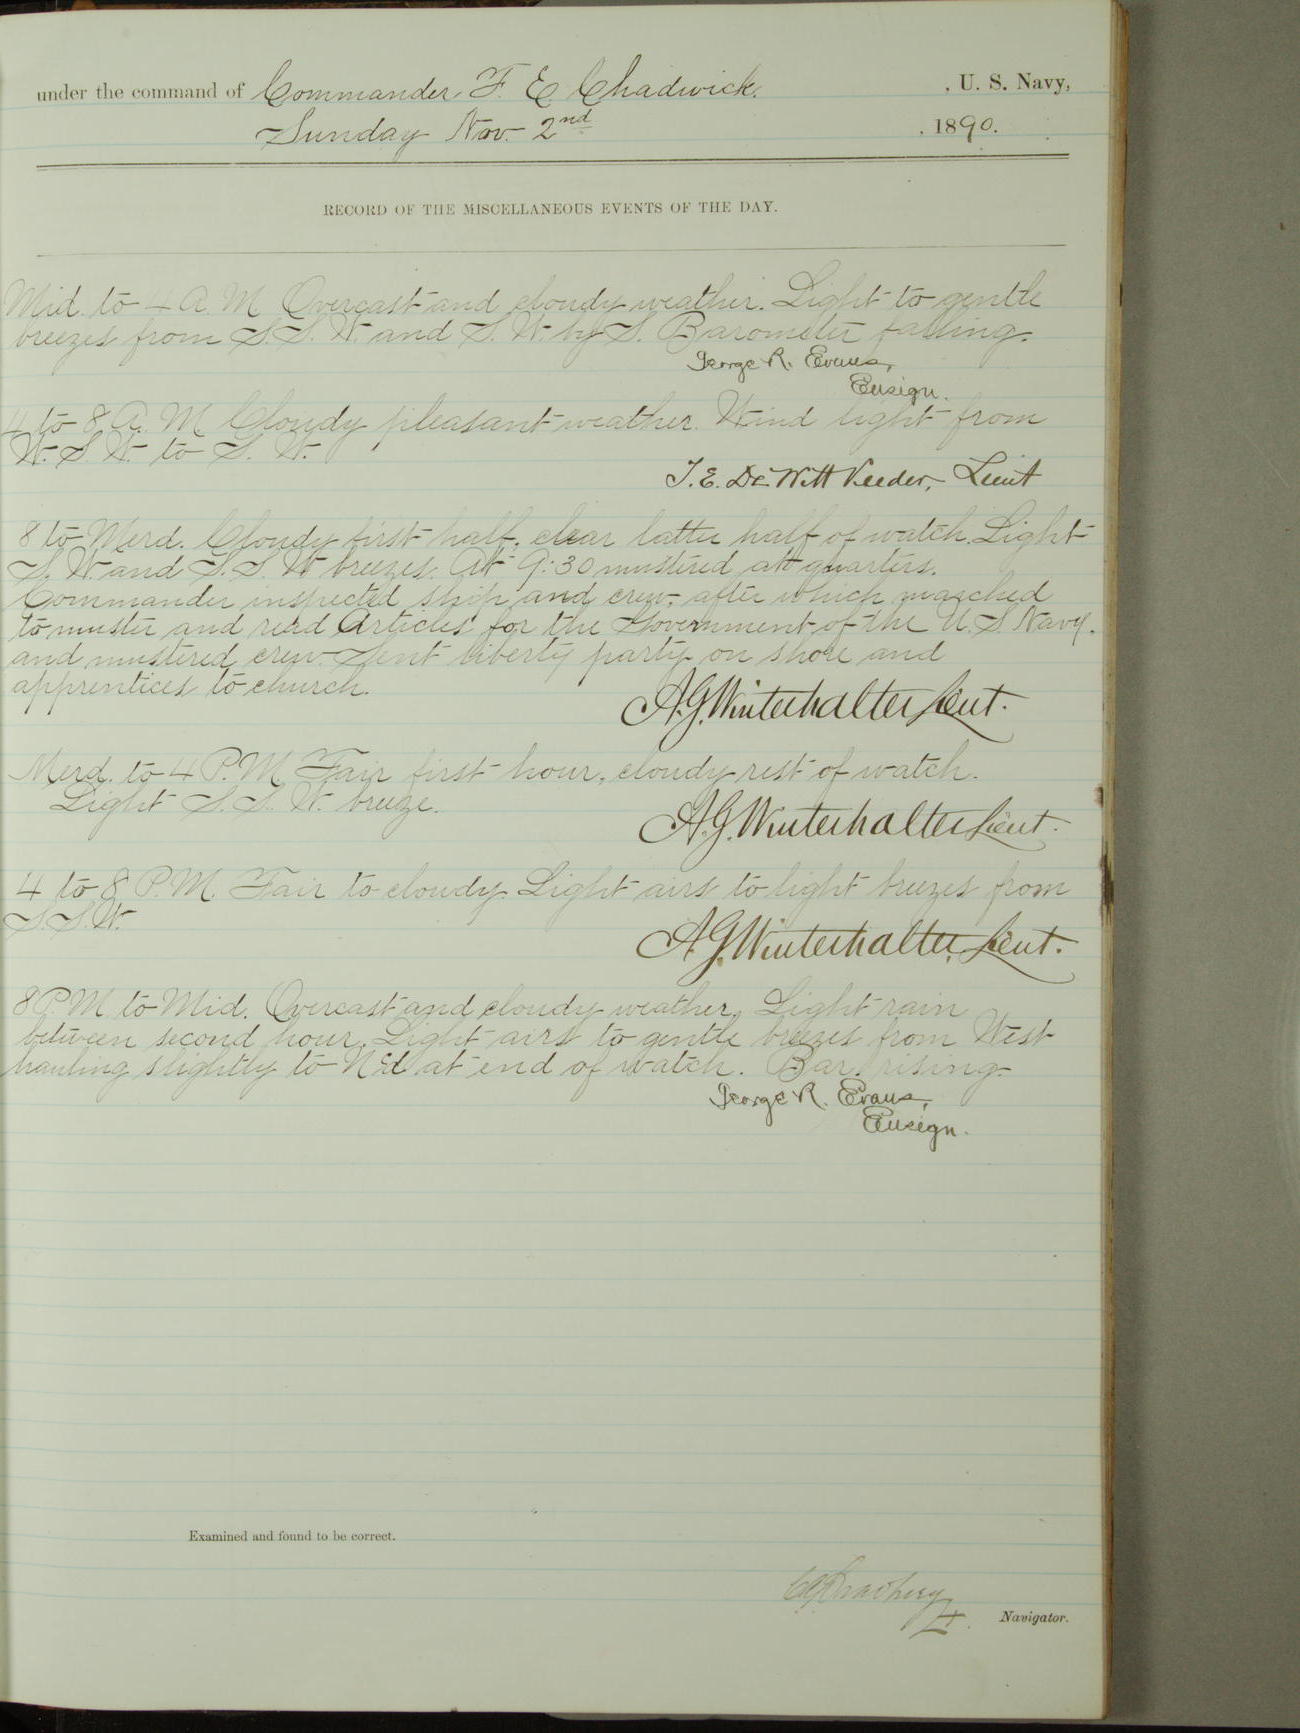 under the command of Commander F. E. Chadwick. , U. S. Navy,
Sunday Nov. 2nd , 1890.
RECORD OF THE MISCELLANEOUS EVENTS OF THE DAY.
Mid. to 4 A. M. Overcast and cloudy weather. Light to gentle
breezes from S. S. W. and S. W. by S. Barometer falling.
George R. Evans,
Ensign.
4 to 8 A. M. Cloudy pleasant weather. Wind light from
W. S. W. to S. W.
T. E. DeWitt Veeder, Lieut
8 to Merd. Cloudy first half, clear latter half of watch. Light
S. W. and S. S. W. breezes. At 9:30 mustered at quarters.
Commander inspected ship and crew, after which marched
to muster and read Articles for the Government of the U. S. Navy.
and mustered crew. Sent liberty party on shore and
apprentices to church.
A. G. Winterhalter Lieut.
Merd. to 4 P. M. Fair first hour, cloudy rest of watch.
Light S. S. W. breeze.
A. G. Winterhalter Lieut.
4 to 8 P. M. Fair to cloudy. Light airs to light breezes from
S. S. W.
A. G. Winterhalter, Lieut.
8 P. M. to Mid. Overcast and cloudy weather, Light rain
between second hour. Light airs to gentle breezes from West
hauling slightly to N'd at end of watch. Bar. rising.
George R. Evans,
Ensign.
Examined and found to be correct.
Navigator.